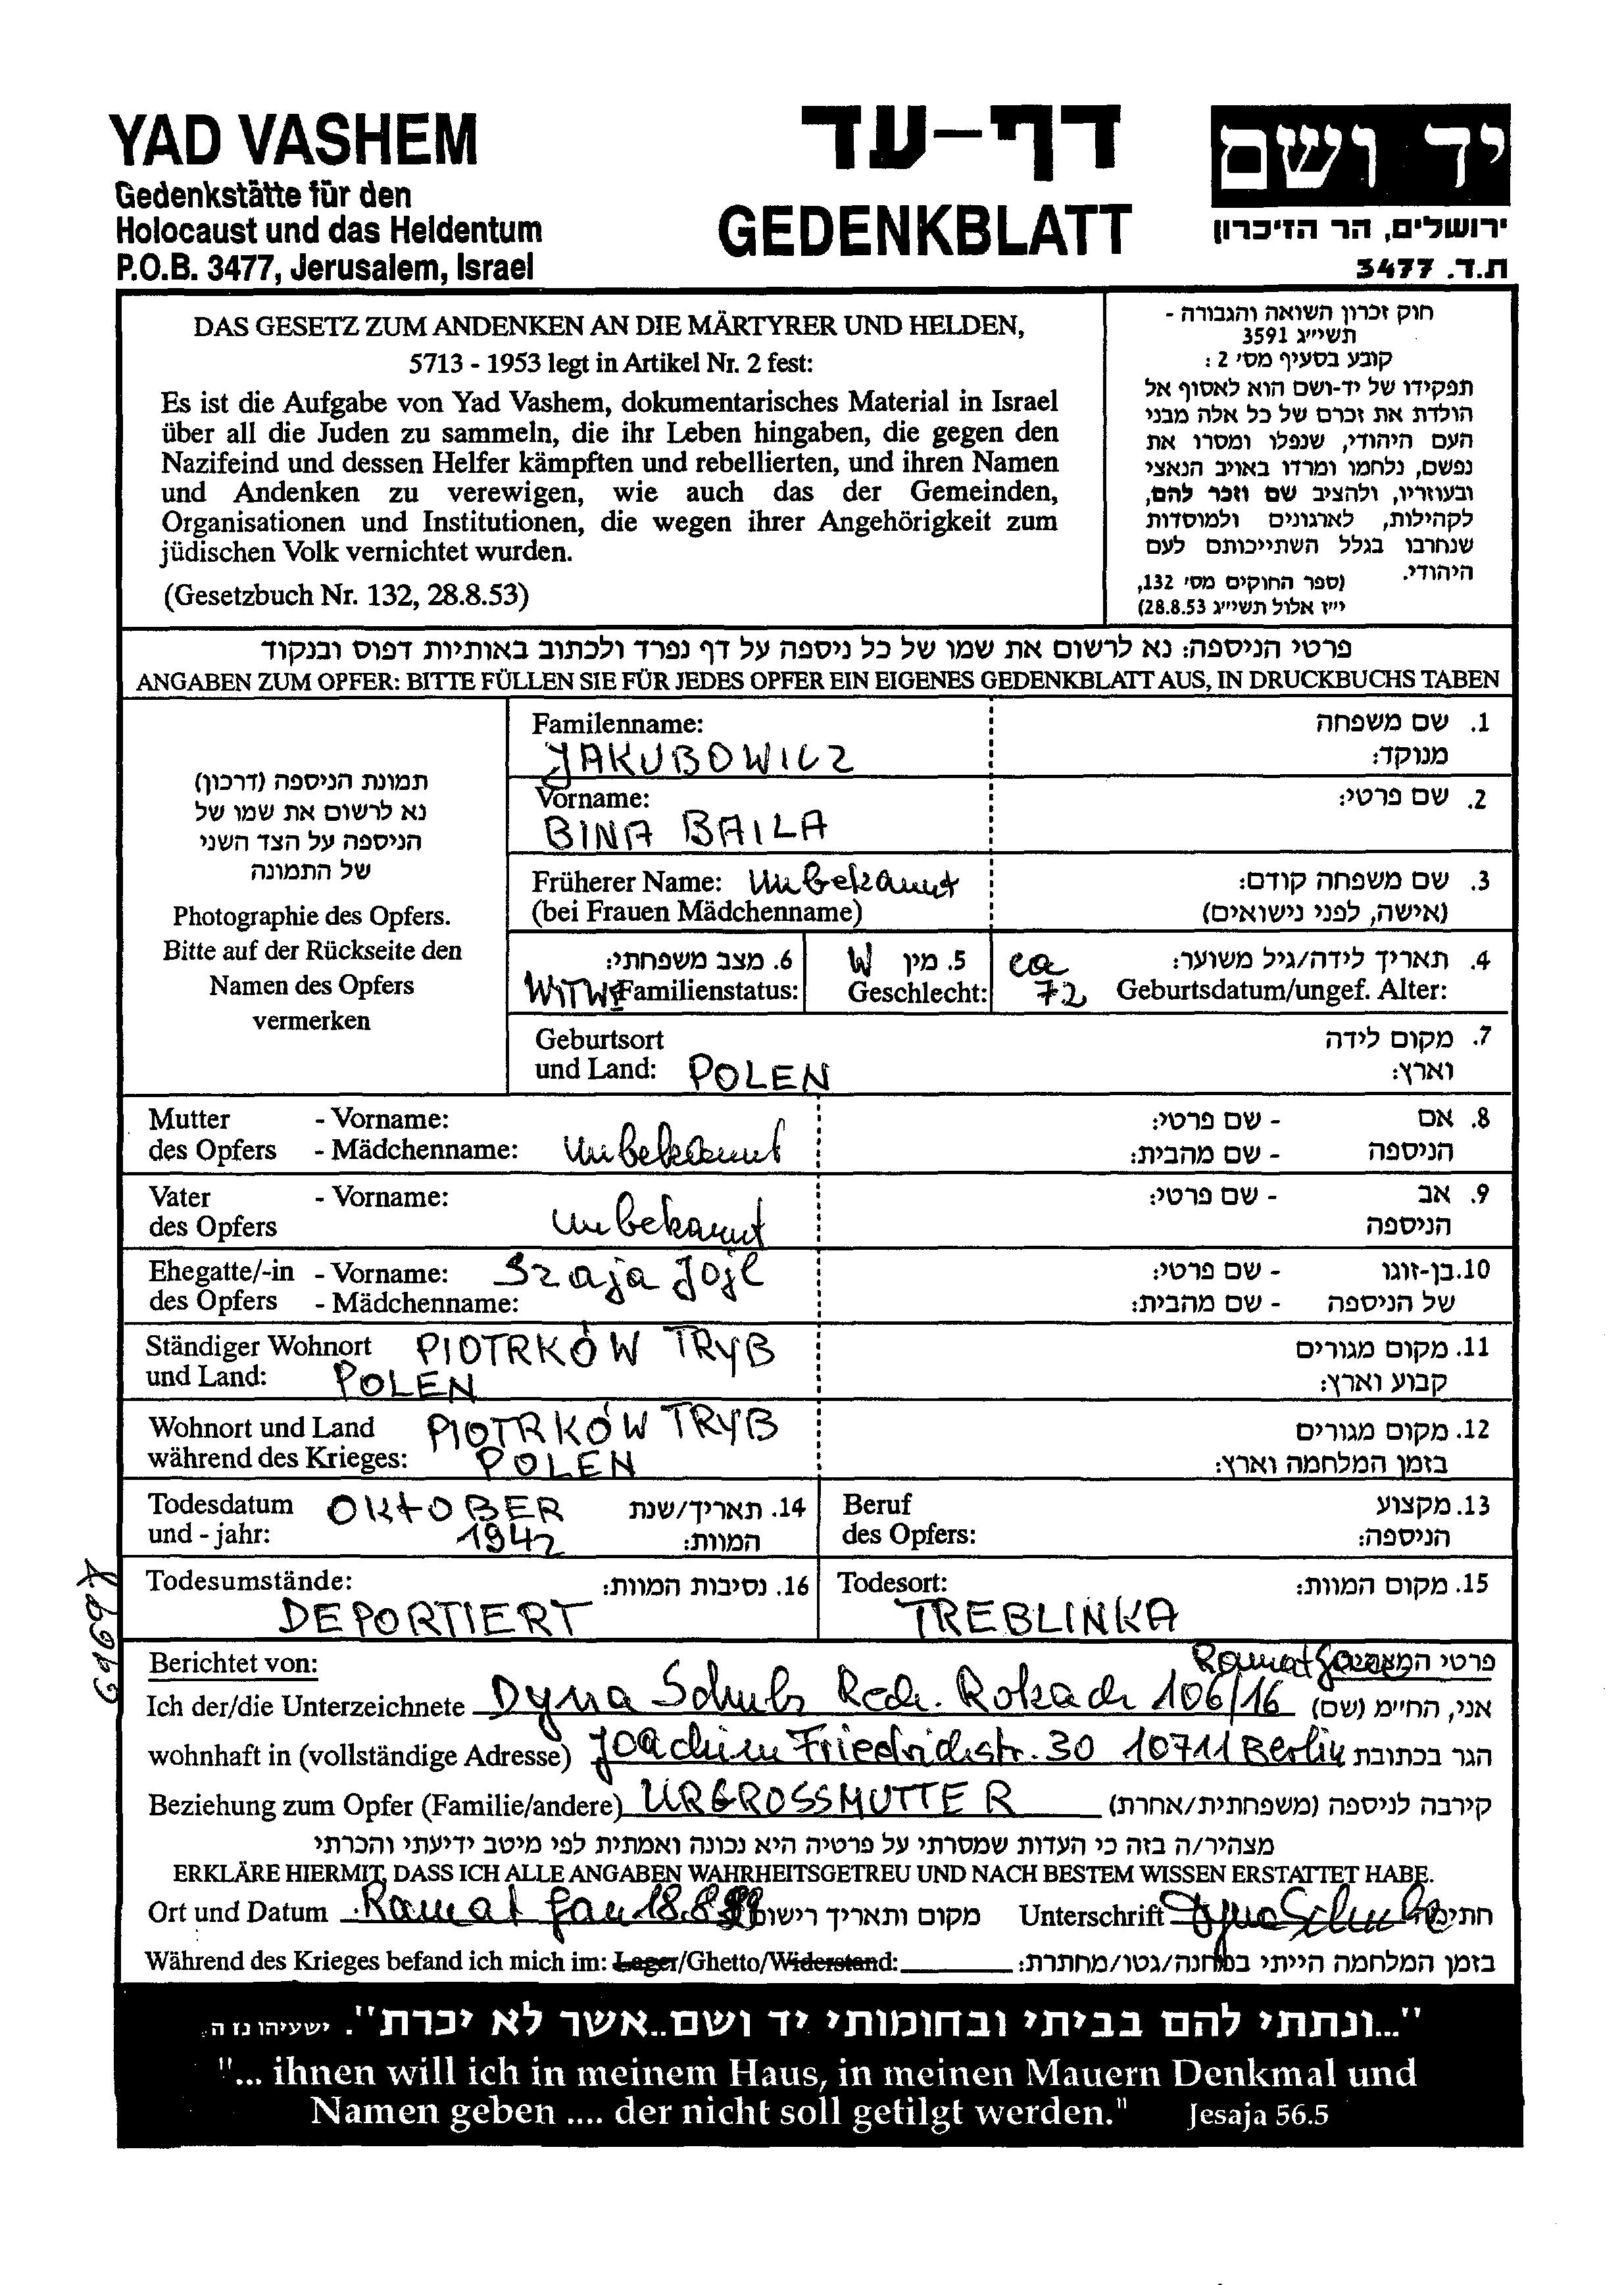 YAD VASHEM
Gedenkstätte für den
Holocaust und das Heldentum
P.O.B. 3477, Jerusalem, Israel
דף-עד
GEDENKBLATT
יד ושם
ירושלים, הר הזיכרון
ת.ד. 3477
DAS GESETZ ZUM ANDENKEN AN DIE MÄRTYRER UND HELDEN,
5713 - 1953 legt in Artikel Nr. 2 fest:
Es ist die Aufgabe von Yad Vashem, dokumentarisches Material in Israel
über all die Juden zu sammeln, die ihr Leben hingaben, die gegen den
Nazifeind und dessen Helfer kämpften und rebellierten, und ihren Namen
und Andenken zu verewigen, wie auch das der Gemeinden,
Organisationen und Institutionen, die wegen ihrer Angehörigkeit zum
jüdischen Volk vernichtet wurden.
(Gesetzbuch Nr. 132, 28.8.53)
חוק זכרון השואה והגבורה -
תשי״ג 3591
קובע בסעיף מס׳ 2 :
תפקידו של יד-ושם הוא לאסוף אל
הולדת את זכרם של כל אלה מבני
העם היהודי, שנפלו ומסרו את
נפשם, נלחמו ומרדו באויב הנאצי
ובעוזריו, ולהציב שם וזכר להם,
לקהילות, לארגונים ולמוסדות
שנחרבו בגלל השתייכותם לעם
היהודי.
(ספר החוקים מס׳ 132,
י״ז אלול תשי״ג 28.8.53)
פרטי הניספה: נא לרשום את שמו של כל ניספה על דף נפרד ולכתוב באותיות דפוס ובנקוד
ANGABEN ZUM OPFER: BITTE FÜLLEN SIE FÜR JEDES OPFER EIN EIGENES GEDENKBLATT AUS, IN DRUCKBUCHS TABEN
תמונת הניספה (דרכון)
נא לרשום את שמו של
הניספה על הצד השני
של התמונה
Photographie des Opfers.
Bitte auf der Rückseite den
Namen des Opfers
vermerken
Familenname: 1. שם משפחה
JAKUBOWICZ מנוקד:
Vorname: 2. שם פרטי:
BINA BAILA
Früherer Name: Unbekannt 3. שם משפחה קודם:
(bei Frauen Mädchenname) (אישה, לפני נישואים)
6. מצב משפחתי: W 5. מין ca 4. תאריך לידה/גיל משוער:
WITWE Familienstatus: Geschlecht: 72 Geburtsdatum/ungef. Alter:
Geburtsort 7. מקום לידה
und Land: POLEN וארץ:
Mutter - Vorname: - שם פרטי: 8. אם
des Opfers - Mädchenname: Unbekannt - שם מהבית: הניספה
Vater - Vorname: - שם פרטי: 9. אב
des Opfers unbekannt הניספה
Ehegatte/-in - Vorname: Szaja Jojl - שם פרטי: 10.בן-זוגו
des Opfers - Mädchenname: - שם מהבית: של הניספה
Ständiger Wohnort PIOTRKÓW TRYB 11. מקום מגורים
und Land: POLEN קבוע וארץ:
Wohnort und Land PIOTRKÓW TRYB 12. מקום מגורים
während des Krieges: POLEN בזמן המלחמה וארץ:
Todesdatum OKTOBER 14. תאריך/שנת Beruf 13. מקצוע
und - jahr: 1942 המוות: des Opfers: הניספה:
Todesumstände: 16. נסיבות המוות: Todesort: 15. מקום המוות:
DEPORTIERT TREBLINKA
Berichtet von: Ramat Gan פרטי
Ich der/die Unterzeichnete Dyna Schulz Rech. Rokach 106/16 אני, החי״מ (שם)
wohnhaft in (vollständige Adresse) Joachim Friedrichstr. 30 10711 Berlin הגר בכתובת
Beziehung zum Opfer (Familie/andere) URGROSSMUTTER קירבה לניספה (משפחתית/אחרת)
מצהיר/ה בזה כי העדות שמסרתי על פרטיה היא נכונה ואמתית לפי מיטב ידיעתי והכרתי
ERKLÄRE HIERMIT, DASS ICH ALLE ANGABEN WAHRHEITSGETREU UND NACH BESTEM WISSEN ERSTATTET HABE.
Ort und Datum Ramat Gan 18.8.99 מקום ותאריך רישום Unterschrift Dyna Schulz חתימה
Während des Krieges befand ich mich im: Lager/Ghetto/Widerstand: בזמן המלחמה הייתי במחנה/גטו/מחתרת:
"...ונתתי להם בביתי ובחומותי יד ושם..אשר לא יכרת". ישעיהו נז ה.
"... ihnen will ich in meinem Haus, in meinen Mauern Denkmal und
Namen geben .... der nicht soll getilgt werden." Jesaja 56.5